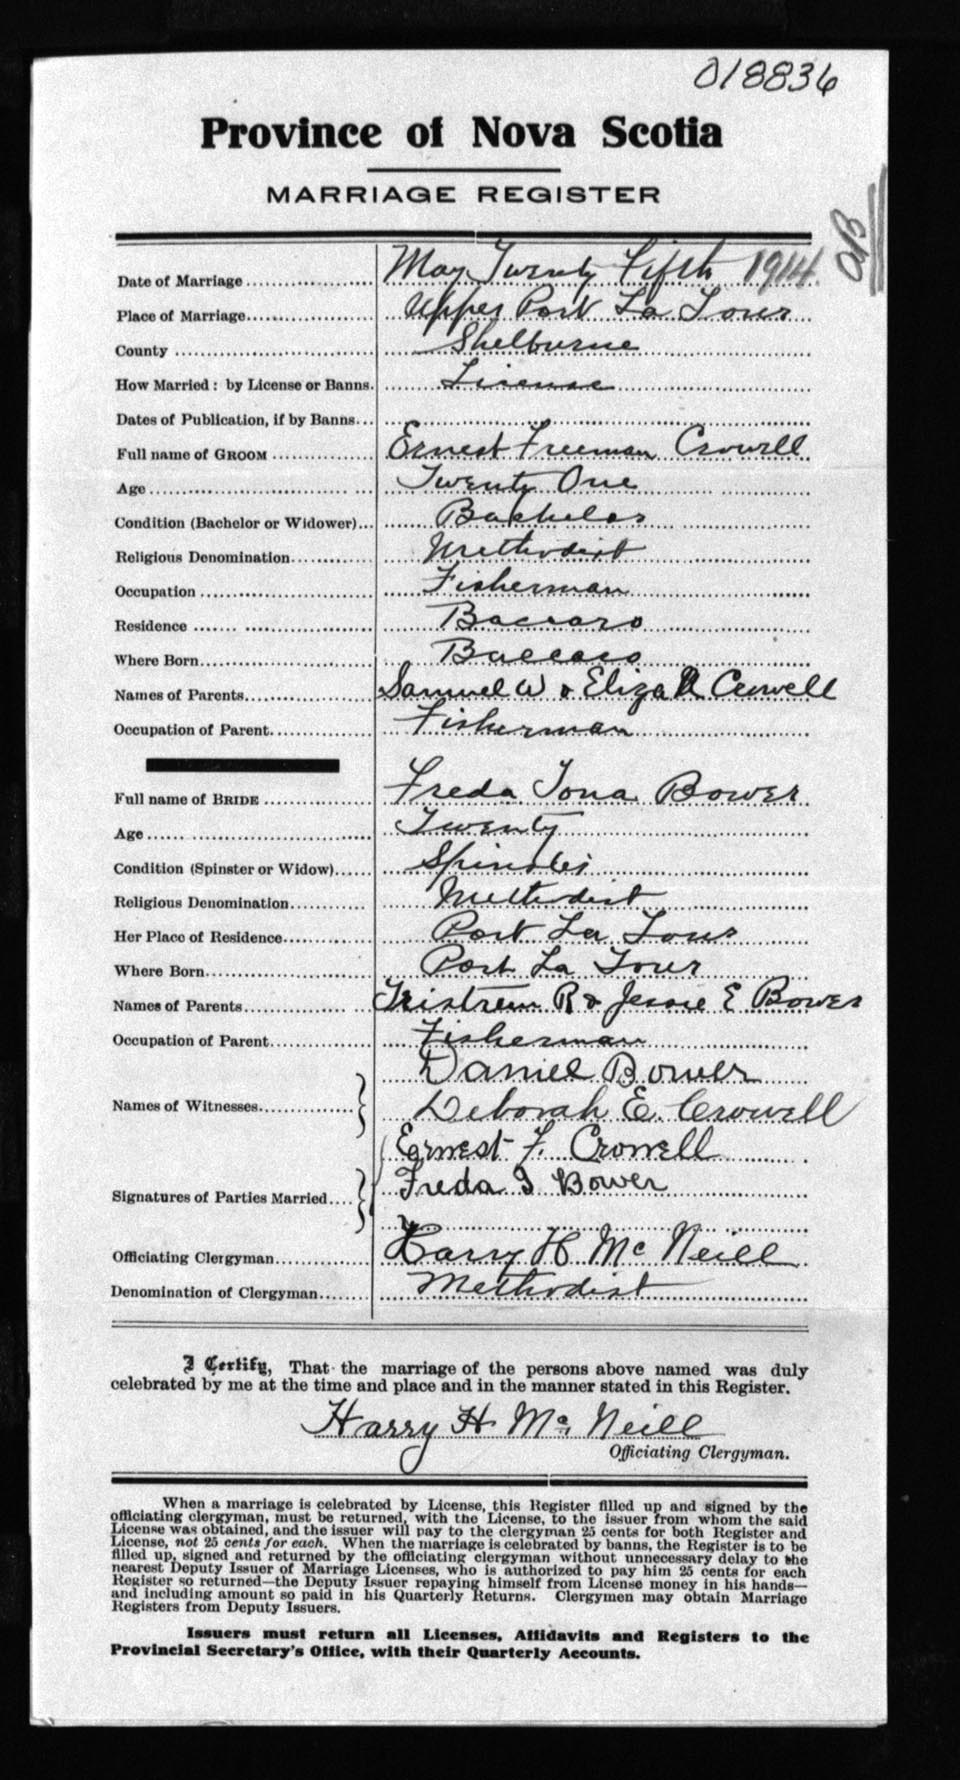 018836
Province of Nova Scotia
MARRIAGE REGISTER
Date of Marriage May Twenty Fifth 1914
Place of Marriage Upper Port La Tour
County Shelburne
How Married: by License or Banns. License
Dates of Publication, if by Banns
Full name of GROOM Ernest Freeman Crowell
Age Twenty One
Condition (Bachelor or Widower) Bachelor
Religious Denomination Methodist
Occupation Fisherman
Residence Baccaro
Where Born Baccaro
Names of Parents Samuel W & Eliza R Crowell
Occupation of Parent Fisherman
Full name of BRIDE Freda Iona Bower
Age Twenty
Condition (Spinster or Widow) Spinster
Religious Denomination Methodist
Her Place of Residence Port La Tour
Where Born Port La Tour
Names of Parents Tristrem R & Jessie E Bower
Occupation of Parent Fisherman
Daniel Bower
Names of Witnesses Deborah E. Crowell
Ernest F. Crowell
Signatures of Parties Married Freda I Bower
Officiating Clergyman Harry H McNeill
Denomination of Clergyman Methodist
I Certify, That the marriage of the persons above named was duly
celebrated by me at the time and place and in the manner stated in this Register.
Harry H McNeill
Officiating Clergyman.
When a marriage is celebrated by License, this Register filled up and signed by the
officiating clergyman, must be returned, with the License, to the issuer from whom the said
License was obtained, and the issuer will pay to the clergyman 25 cents for both Register and
License, not 25 cents for each. When the marriage is celebrated by banns, the Register is to be
filled up, signed and returned by the officiating clergyman without unnecessary delay to the
nearest Deputy Issuer of Marriage Licenses, who is authorized to pay him 25 cents for each
Register so returned—the Deputy Issuer repaying himself from License money in his hands—
and including amount so paid in his Quarterly Returns. Clergymen may obtain Marriage
Registers from Deputy Issuers.
Issuers must return all Licenses, Affidavits and Registers to the
Provincial Secretary's Office, with their Quarterly Accounts.